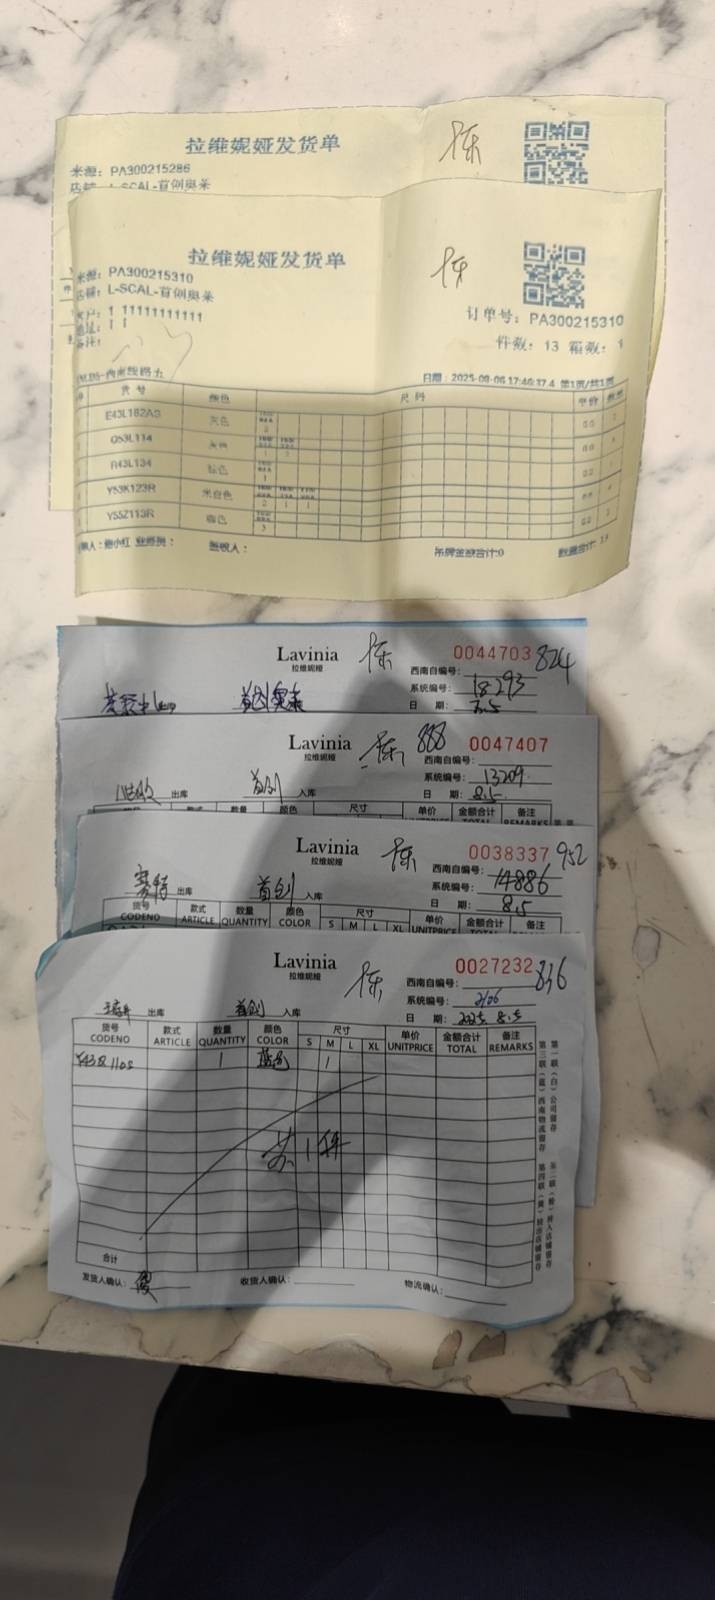 拉维妮娅发货单
来源: PA300215286
店铺: L-SCAL-首创奥莱
拉维妮娅发货单
来源: PA300215310
店铺: L-SCAL-首创奥莱
客户: 1 11111111111
订单号: PA300215310
地址: 1 1
备注:
件数: 13 箱数: 1
日期: 2025-08-06 17:46:37.4 第1页/共1页
货号 颜色 尺码 单价 数量
E43L162AS 灰色
Q53L114 灰色
R43L134 棕色
Y53K123R 米白色
Y55Z113R
签收人: 吊牌金额合计:0 数量合计: 13
Lavinia
拉维妮娅
0044703 824
西南自编号:
系统编号: 18293
日 期: 8.5
首创奥莱
Lavinia
拉维妮娅
888 0047407
西南自编号:
系统编号: 13209
日 期: 8.5
出库 首创 入库
款式 数量 颜色 尺寸 单价 金额合计 备注
Lavinia
拉维妮娅
0038337 952
西南自编号:
系统编号: 14886
日 期: 8.5
赛特 出库 首创 入库
货号 款式 数量 颜色 尺寸 单价 金额合计 备注
CODENO ARTICLE QUANTITY COLOR S M L XL UNITPRICE TOTAL REMARKS
Lavinia
拉维妮娅
0027232 836
西南自编号:
系统编号: 2106
日 期: 2025. 8.5
出库 首创 入库
货号 款式 数量 颜色 尺寸 单价 金额合计 备注
CODENO ARTICLE QUANTITY COLOR S M L XL UNITPRICE TOTAL REMARKS
1 蓝色 1
共1件
合计
发货人确认: 收货人确认: 物流确认:
第一联(白)公司留存
第二联(粉)转入店铺留存
第三联(蓝)西南物流留存
第四联(黄)转出店铺留存